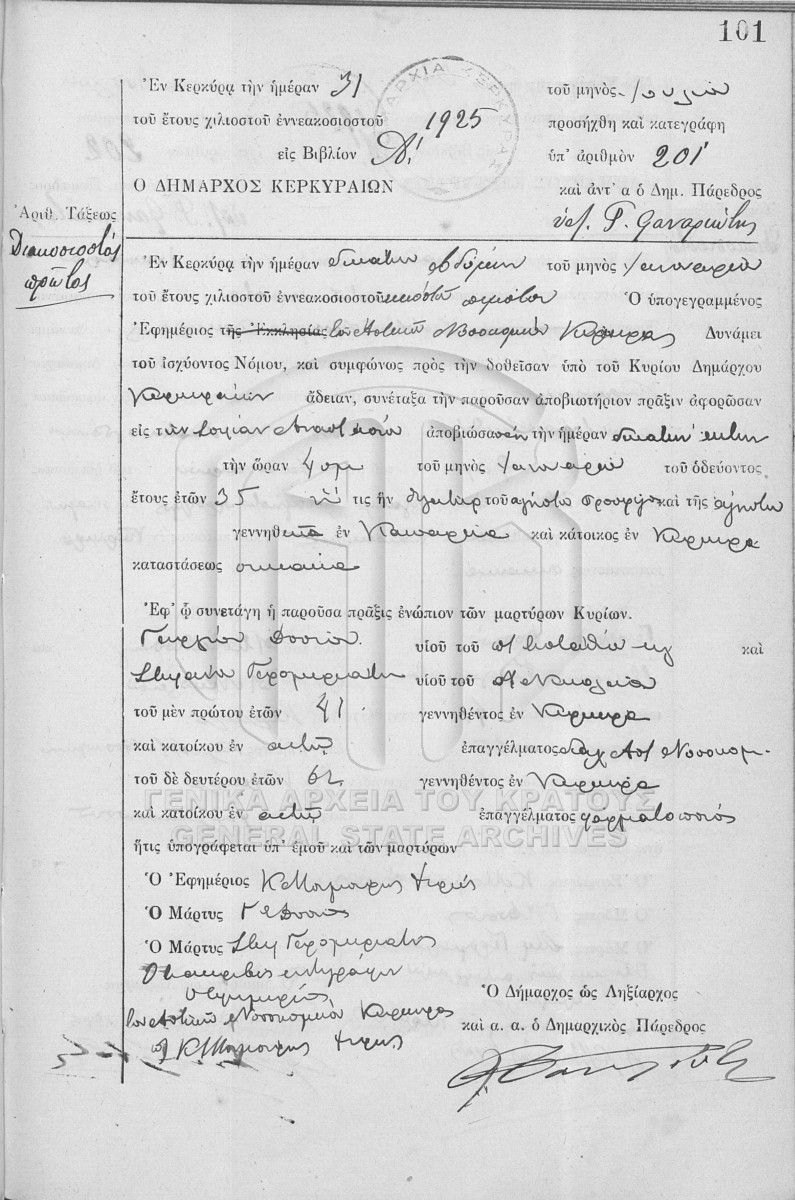 101
Ἐν Κερκύρᾳ τὴν ἡμέραν 31 τοῦ μηνὸς Ἰουλίου
τοῦ ἔτους χιλιοστοῦ ἐννεακοσιοστοῦ 1925 προσήχθη καὶ κατεγράφη
εἰς Βιβλίον Δ΄ ὑπ' ἀριθμὸν 201
Ο ΔΗΜΑΡΧΟΣ ΚΕΡΚΥΡΑΙΩΝ καὶ ἀντ' α ὁ Δημ. Πάρεδρος
ὑπ. Γ.
Ἀριθ. Τάξεως
Διακοσιοστός
πρῶτος
Ἐν Κερκύρᾳ τὴν ἡμέραν δεκάτην ἑβδόμην τοῦ μηνὸς Ἰανουαρίου
τοῦ ἔτους χιλιοστοῦ ἐννεακοσιοστοῦ εἰκοστοῦ πέμπτου Ὁ ὑπογεγραμμένος
Ἐφημέριος τῆς Ἐκκλησίας τοῦ Ἀστικοῦ Νοσοκομείου Κερκύρας Δυνάμει
τοῦ ἰσχύοντος Νόμου, καὶ συμφώνως πρὸς τὴν δοθεῖσαν ὑπὸ τοῦ Κυρίου Δημάρχου
Κερκυραίων ἄδειαν, συνέταξα τὴν παροῦσαν ἀποβιωτήριον πρᾶξιν ἀφορῶσαν
εἰς τὴν Σοφίαν ἀποβιώσασαν τὴν ἡμέραν δεκάτην ἕκτην
τὴν ὥραν 4 μμ τοῦ μηνὸς Ἰανουαρίου τοῦ ὁδεύοντος
ἔτους ἐτῶν 35 ἥ τις ἦν θυγάτηρ τοῦ ἀγνώστου καὶ τῆς ἀγνώστου
γεννηθεῖσα ἐν καὶ κάτοικος ἐν Κέρκυρα
καταστάσεως οἰκιακὰ
Ἐφ' ᾧ συνετάγη ἡ παροῦσα πρᾶξις ἐνώπιον τῶν μαρτύρων Κυρίων.
Γεωργίου υἱοῦ τοῦ καὶ
Γερομηριάτη υἱοῦ τοῦ Νικολάου
τοῦ μὲν πρώτου ἐτῶν 41 γεννηθέντος ἐν Κέρκυρα
καὶ κατοίκου ἐν αὐτῇ ἐπαγγέλματος Νοσοκομ.
τοῦ δὲ δευτέρου ἐτῶν 62 γεννηθέντος ἐν Κέρκυρα
καὶ κατοίκου ἐν αὐτῇ ἐπαγγέλματος φαρματοποιός
ἥτις ὑπογράφεται ὑπ' ἐμοῦ καὶ τῶν μαρτύρων
Ὁ Ἐφημέριος Κ ἱερεύς
Ὁ Μάρτυς Γ
Ὁ Μάρτυς Γερομηριάτης
ἀκριβὲς ἀντίγραφον
Ὁ Ἐφημέριος
τοῦ Ἀστικοῦ Νοσοκομείου Κερκύρας
Κ ἱερεύς
Ὁ Δήμαρχος ὡς Ληξίαρχος
καὶ α. α. ὁ Δημαρχικὸς Πάρεδρος
ΓΕΝΙΚΑ ΑΡΧΕΙΑ ΤΟΥ ΚΡΑΤΟΥΣ
GENERAL STATE ARCHIVES